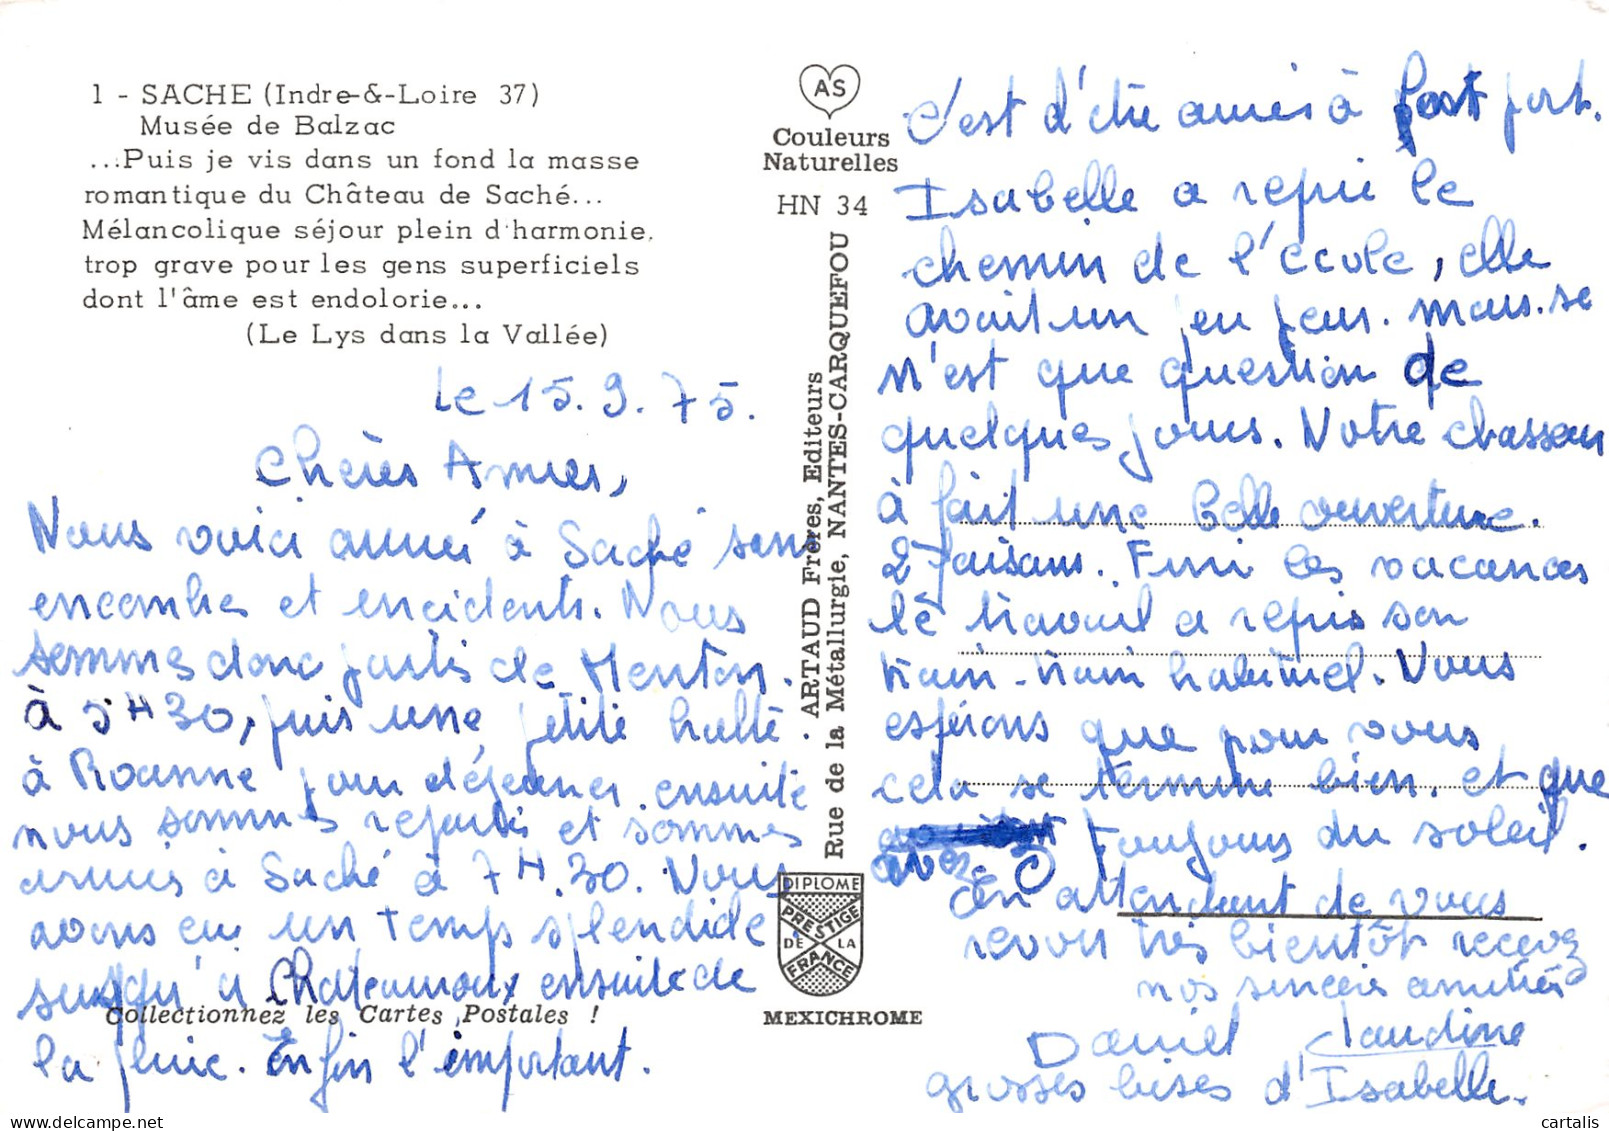 1 - SACHE (Indre-&-Loire 37)
Musée de Balzac
...Puis je vis dans un fond la masse
romantique du Château de Saché...
Mélancolique séjour plein d'harmonie,
trop grave pour les gens superficiels
dont l'âme est endolorie...
(Le Lys dans la Vallée)
le 15.9.75.
Chères Amies,
Nous voici arrivé à Saché sans
encombres et encidents. Nous
sommes donc partis de Menton.
à 5H30, puis une petite halte.
à Roanne pour déjeuner. ensuite
nous sommes repartis et sommes
arrivés à Saché à 7H.30. Nous
avons eu un temps splendide
jusqu'à Chateauroux ensuite de
la pluie. Enfin l'important.
Collectionnez les Cartes Postales !
AS
Couleurs
Naturelles
HN 34
ARTAUD Frères, Editeurs
Rue de la Métallurgie, NANTES-CARQUEFOU
DIPLOME
PRESTIGE
DE LA
FRANCE
MEXICHROME
c'est d'être arrivés à port.
Isabelle a repris le
chemin de l'école, elle
avait un peu peur. mais. se
n'est que question de
quelques jours. Notre chasseur
à fait une belle ouverture.
2 faisans. Fini les vacances
le travail a repris son
train-train habituel. Nous
espérons que pour vous
cela se termine bien. et que
avez toujours du soleil.
En attendant de vous
revoir très bientôt recevez
nos sincères amitiés
Daniel Claudine
grosses bises d'Isabelle.
delcampe.net
cartalis